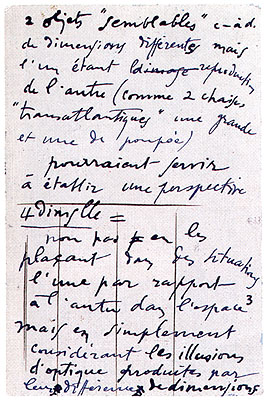 2 objets "semblables" c-à d.
de dimensions différentes mais
l'un étant reproduction
de l'autre (comme 2 chaises
"transatlantiques" une grande
et une de poupée)
pourraient servir
à établir une perspective
4 dimslle =
non pas en les
plaçant dans des situations
l'une par rapport
à l'autre dans l'espace 3
mais en simplement
considérant les illusions
d'optique produites par
leur différence de dimensions